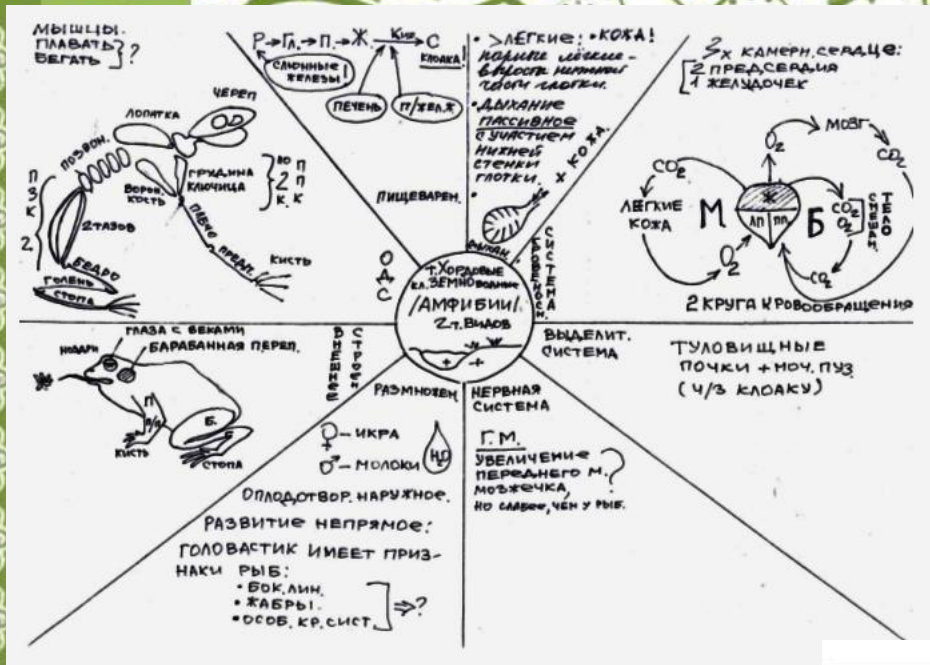 МЫШЦЫ.
ПЛАВАТЬ
БЕГАТЬ
?
ЧЕРЕП
ЛОПАТКА
ПОЗВОН.
ГРУДИНА
КЛЮЧИЦА
ВОРОН.
КОСТЬ
Ю П
2 П
К. К.
П
З
К
2.
2 ТАЗОВ
БЕДРО
ГОЛЕНЬ
СТОПА
ПЛЕЧО
ПРЕДП.
КИСТЬ
О
Д
С
Р→ГЛ.→П.→Ж. КИШ→С
КЛОАКА!
СЛЮННЫЕ
ЖЕЛЕЗЫ!
ПЕЧЕНЬ
П/ЖЕЛ.Ж
ПИЩЕВАРЕН.
• >ЛЕГКИЕ: • КОЖА!
ПАРНЫЕ ЛЁГКИЕ-
ВЫРОСТЫ НИЖНЕЙ
ЧАСТИ ГЛОТКИ.
• ДЫХАНИЕ
ПАССИВНОЕ
С УЧАСТИЕМ
НИЖНЕЙ
СТЕНКИ
ГЛОТКИ. Х КОЖА.
ДЫХАН.
КРОВЕНОСН.
СИСТЕМА
3х КАМЕРН. СЕРДЦЕ:
2 ПРЕДСЕРДИЯ
1 ЖЕЛУДОЧЕК
O2
МОЗГ
CO2
CO2
ЛЕГКИЕ
КОЖА
М
Ж
ЛП ПП.
Б
CO2
O2
СМЕШАН.
ТЕЛО
O2
CO2
2 КРУГА КРОВООБРАЩЕНИЯ
Т. ХОРДОВЫЕ
КЛ. ЗЕМНОВОДНЫЕ
/АМФИБИИ/.
2 Т. ВИДОВ
ГЛАЗА С ВЕКАМИ
НОЗДРИ
БАРАБАННАЯ ПЕРЕП.
П
П/П
КИСТЬ
Б.
СТОПА
ВНЕШНЕЕ
СТРОЕН
РАЗМНОЖЕН.
♀ – ИКРА
♂ – МОЛОКИ
H2O
ОПЛОДОТВОР. НАРУЖНОЕ.
РАЗВИТИЕ НЕПРЯМОЕ:
ГОЛОВАСТИК ИМЕЕТ ПРИЗ-
НАКИ РЫБ:
• БОК. ЛИН.
• ЖАБРЫ.
• ОСОБ. КР. СИСТ.
⇒?
НЕРВНАЯ
СИСТЕМА
Г.М.
УВЕЛИЧЕНИЕ
ПЕРЕДНЕГО М.
МОЗЖЕЧКА,
НО СЛАБЕЕ, ЧЕМ У РЫБ.
?
ВЫДЕЛИТ.
СИСТЕМА
ТУЛОВИЩНЫЕ
ПОЧКИ + МОЧ. ПУЗ
(Ч/З КЛОАКУ)